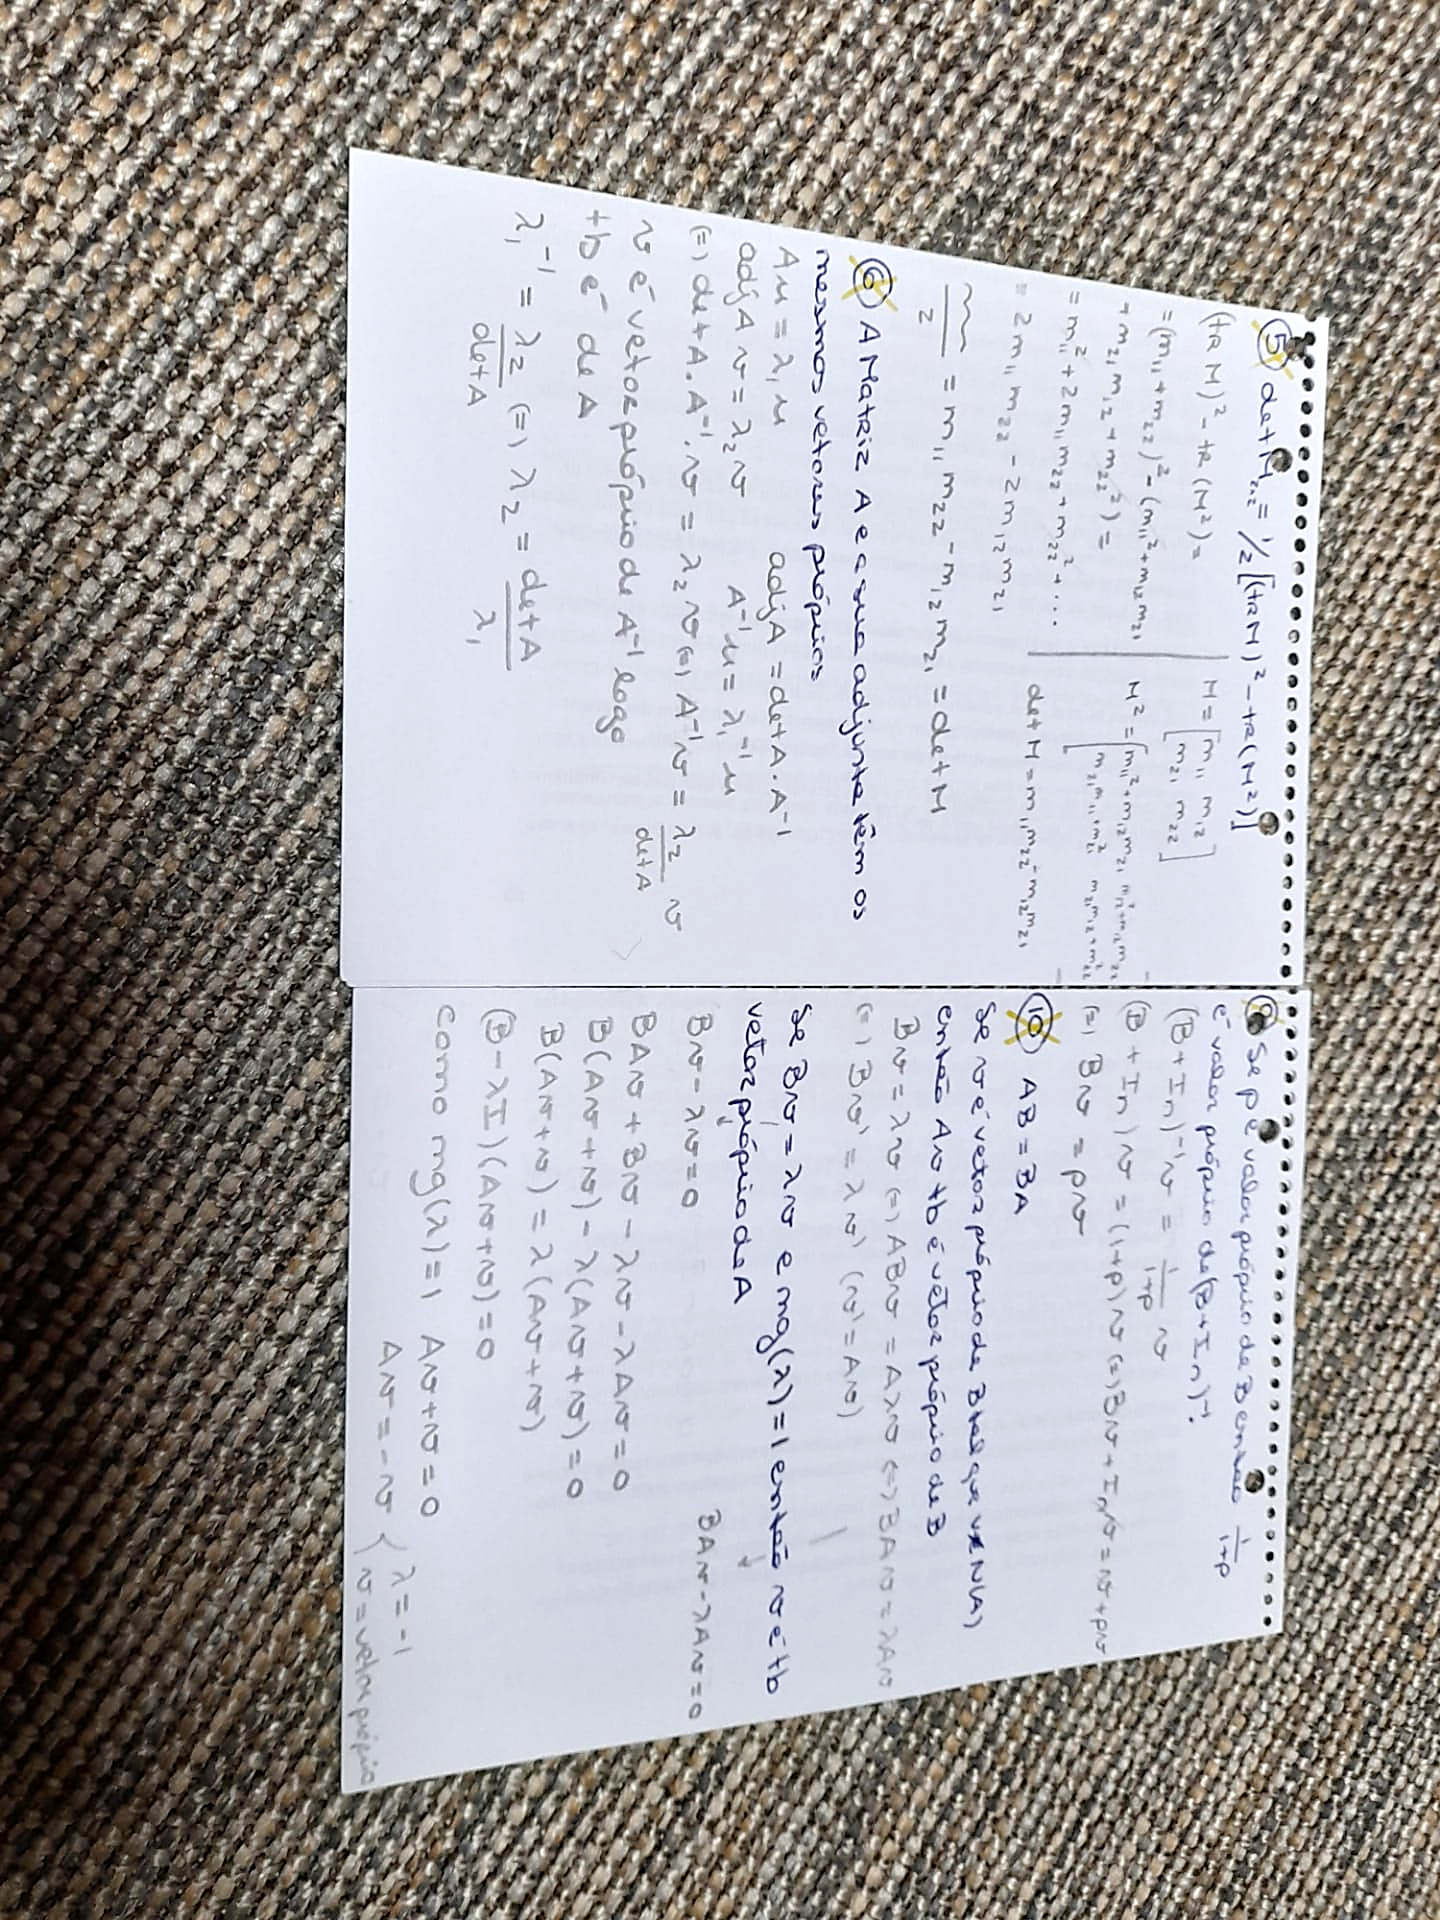 ⑤ det M₂,₂ = 1/2 [(tr M)² - tr(M²)]
(tr M)² - tr(M²) =
= (m₁₁ + m₂₂)² - (m₁₁² + m₁₂m₂₁
+ m₂₁m₁₂ + m₂₂²) =
= m₁₁² + 2m₁₁m₂₂ + m₂₂² + ...
= 2m₁₁m₂₂ - 2m₁₂m₂₁
M = [m₁₁ m₁₂
m₂₁ m₂₂]
M² = [m₁₁² + m₁₂m₂₁
m₂₁m₁₂ + m₂₂²
det M = m₁₁m₂₂ - m₁₂m₂₁
/2 = m₁₁m₂₂ - m₁₂m₂₁ = det M
⑥ A Matriz A e a sua adjunta têm os
mesmos vetores próprios
Au = λ₁u adj A = det A . A⁻¹
adj A v = λ₂v A⁻¹u = λ₁⁻¹u
(=) det A . A⁻¹ . v = λ₂v (=) A⁻¹v = λ₂/det A v
v é vetor próprio de A⁻¹ logo
tb é de A
λ₁⁻¹ = λ₂/det A (=) λ₂ = det A/λ₁
Se p é valor próprio de B então 1/1+p
é valor próprio de (B+In)⁻¹.
(B+In)⁻¹v = 1/1+p v
(B+In)v = (1+p)v (=) Bv + Inv = v + pv
(=) Bv = pv
⑩ AB = BA
Se v é vetor próprio de B tal que v∉N(A)
então Av tb é vetor próprio de B
Bv = λv (=) ABv = Aλv (=) BAv = λAv
(=) Bv' = λv' (v' = Av)
Se Bv = λv e mg(λ) = 1 então v é tb
vetor próprio de A
Bv - λv = 0 BAv - λAv = 0
BAv + Bv - λv - λAv = 0
B(Av+v) - λ(Av+v) = 0
B(Av+v) = λ(Av+v)
(B-λI)(Av+v) = 0
como mg(λ) = 1 Av+v = 0
Av = -v { λ = -1
v = vetor próprio